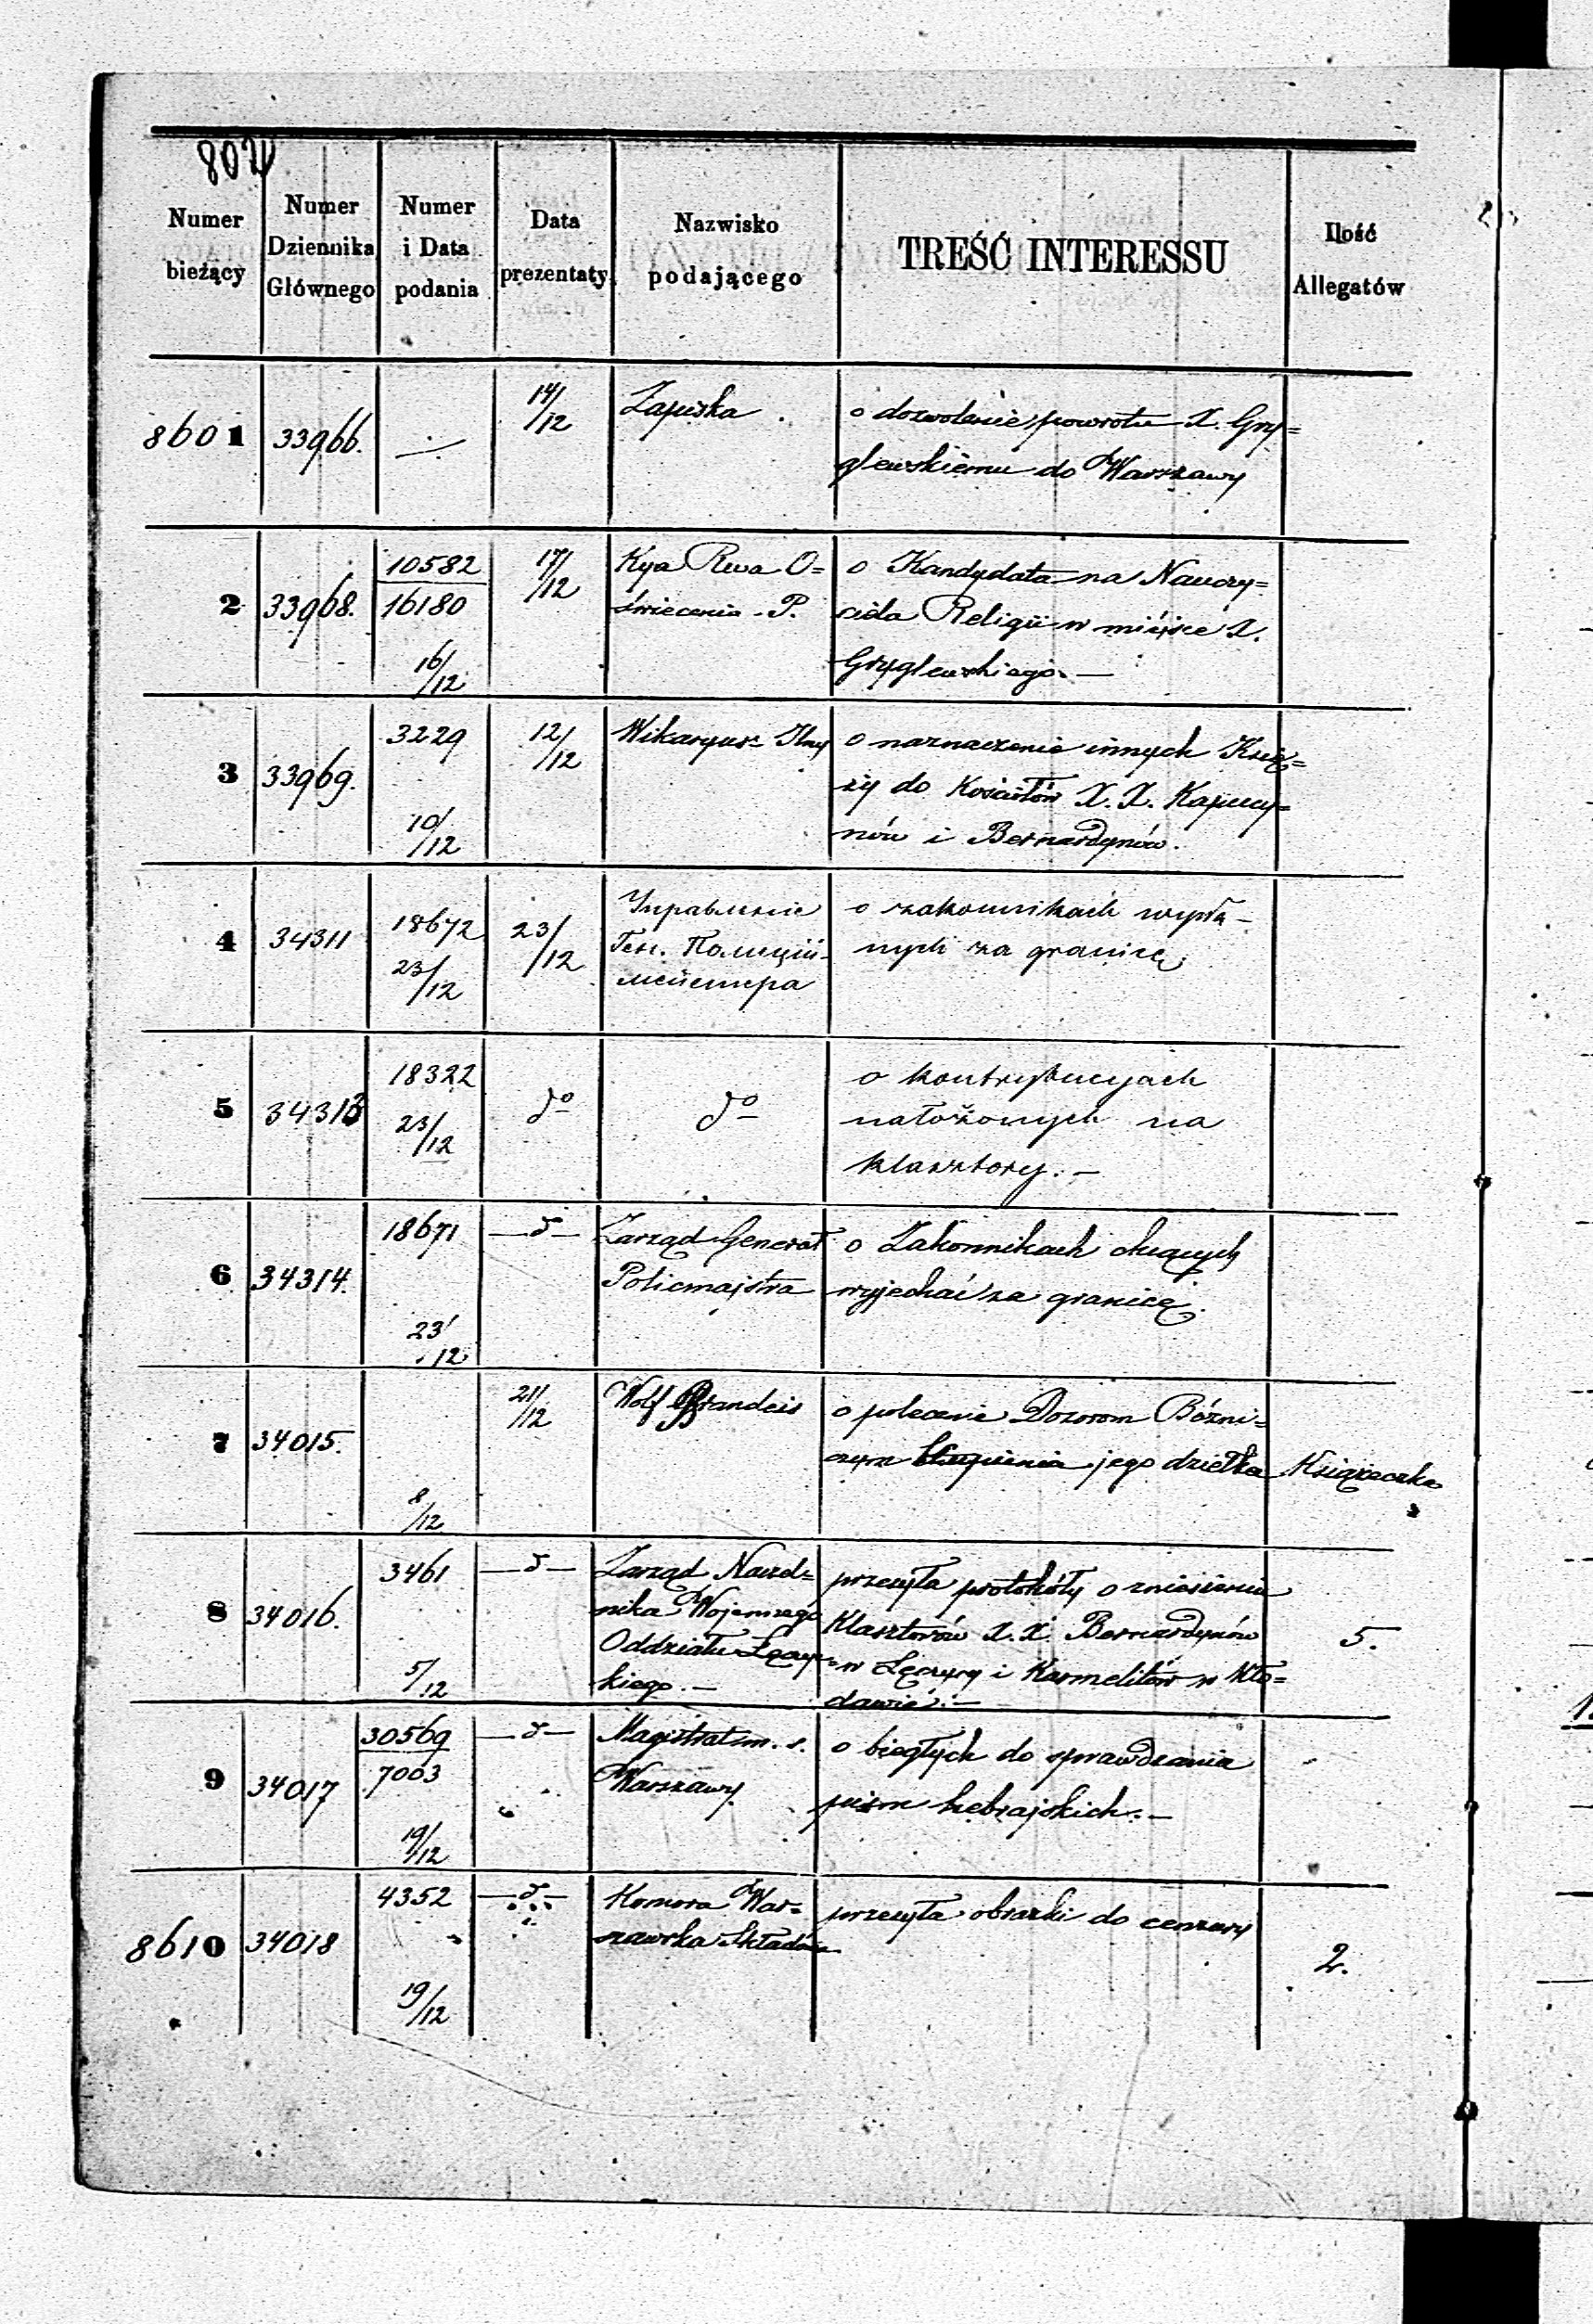 807
Numer bieżący
Numer Dziennika Głównego
Numer i Data podania
Data prezentaty
Nazwisko podającego
TREŚĆ INTERESSU
Ilość Allegatów
8601 33966. 14/12 Zapiska. o dozwolenie powrotu X. Gry=
glewskiemu do Warszawy
2 33968. 10582 17/12 Kya Rwa O= o Kandydata na Nauczy=
16180 świecenia P. ciela Religii w miejsce X.
16/12 Gryglewskiego.—
3 33969. 3229 12/12 Wikaryusz o naznaczenie innych Księ=
ży do Kościołów X. X. Kapucy=
10/12 nów i Bernardynów.
4 34311 18672 23/12 Управление o zakonnikach
23/12 Ген. Полиций- nych za granicę.
мейстера
5 34313 18322 do do o kontrybucyach
23/12 nałożonych na
klasztory.—
6 34314. 18671 —d— Zarząd Generał o Zakonnikach chcących
Policmajstra wyjechać za granicę.
23/12
7 34015. 21/12 Wolf Brandeis o polecenie Dozorom Bóżni=
czym kupienia jego dziełka Książeczka
8/12
8 34016. 3461 —d— Zarząd Naczel= przesyła protokóły o zniesieniu
nika Wojennego Klasztorów X. X. Bernardynów 5.
Oddziału Łęczyc= w Łęczycy i Karmelitów w Kło=
5/12 kiego.— dawie.—
9 34017 30569 —d— Magistrat m. s. o biegłych do sprawdzania
7003 Warszawy. pism hebrajskich.—
19/12
8610 34018 4352 —d— Komora War= przesyła obrazki do cenzury
szawska Składowa 2.
19/12